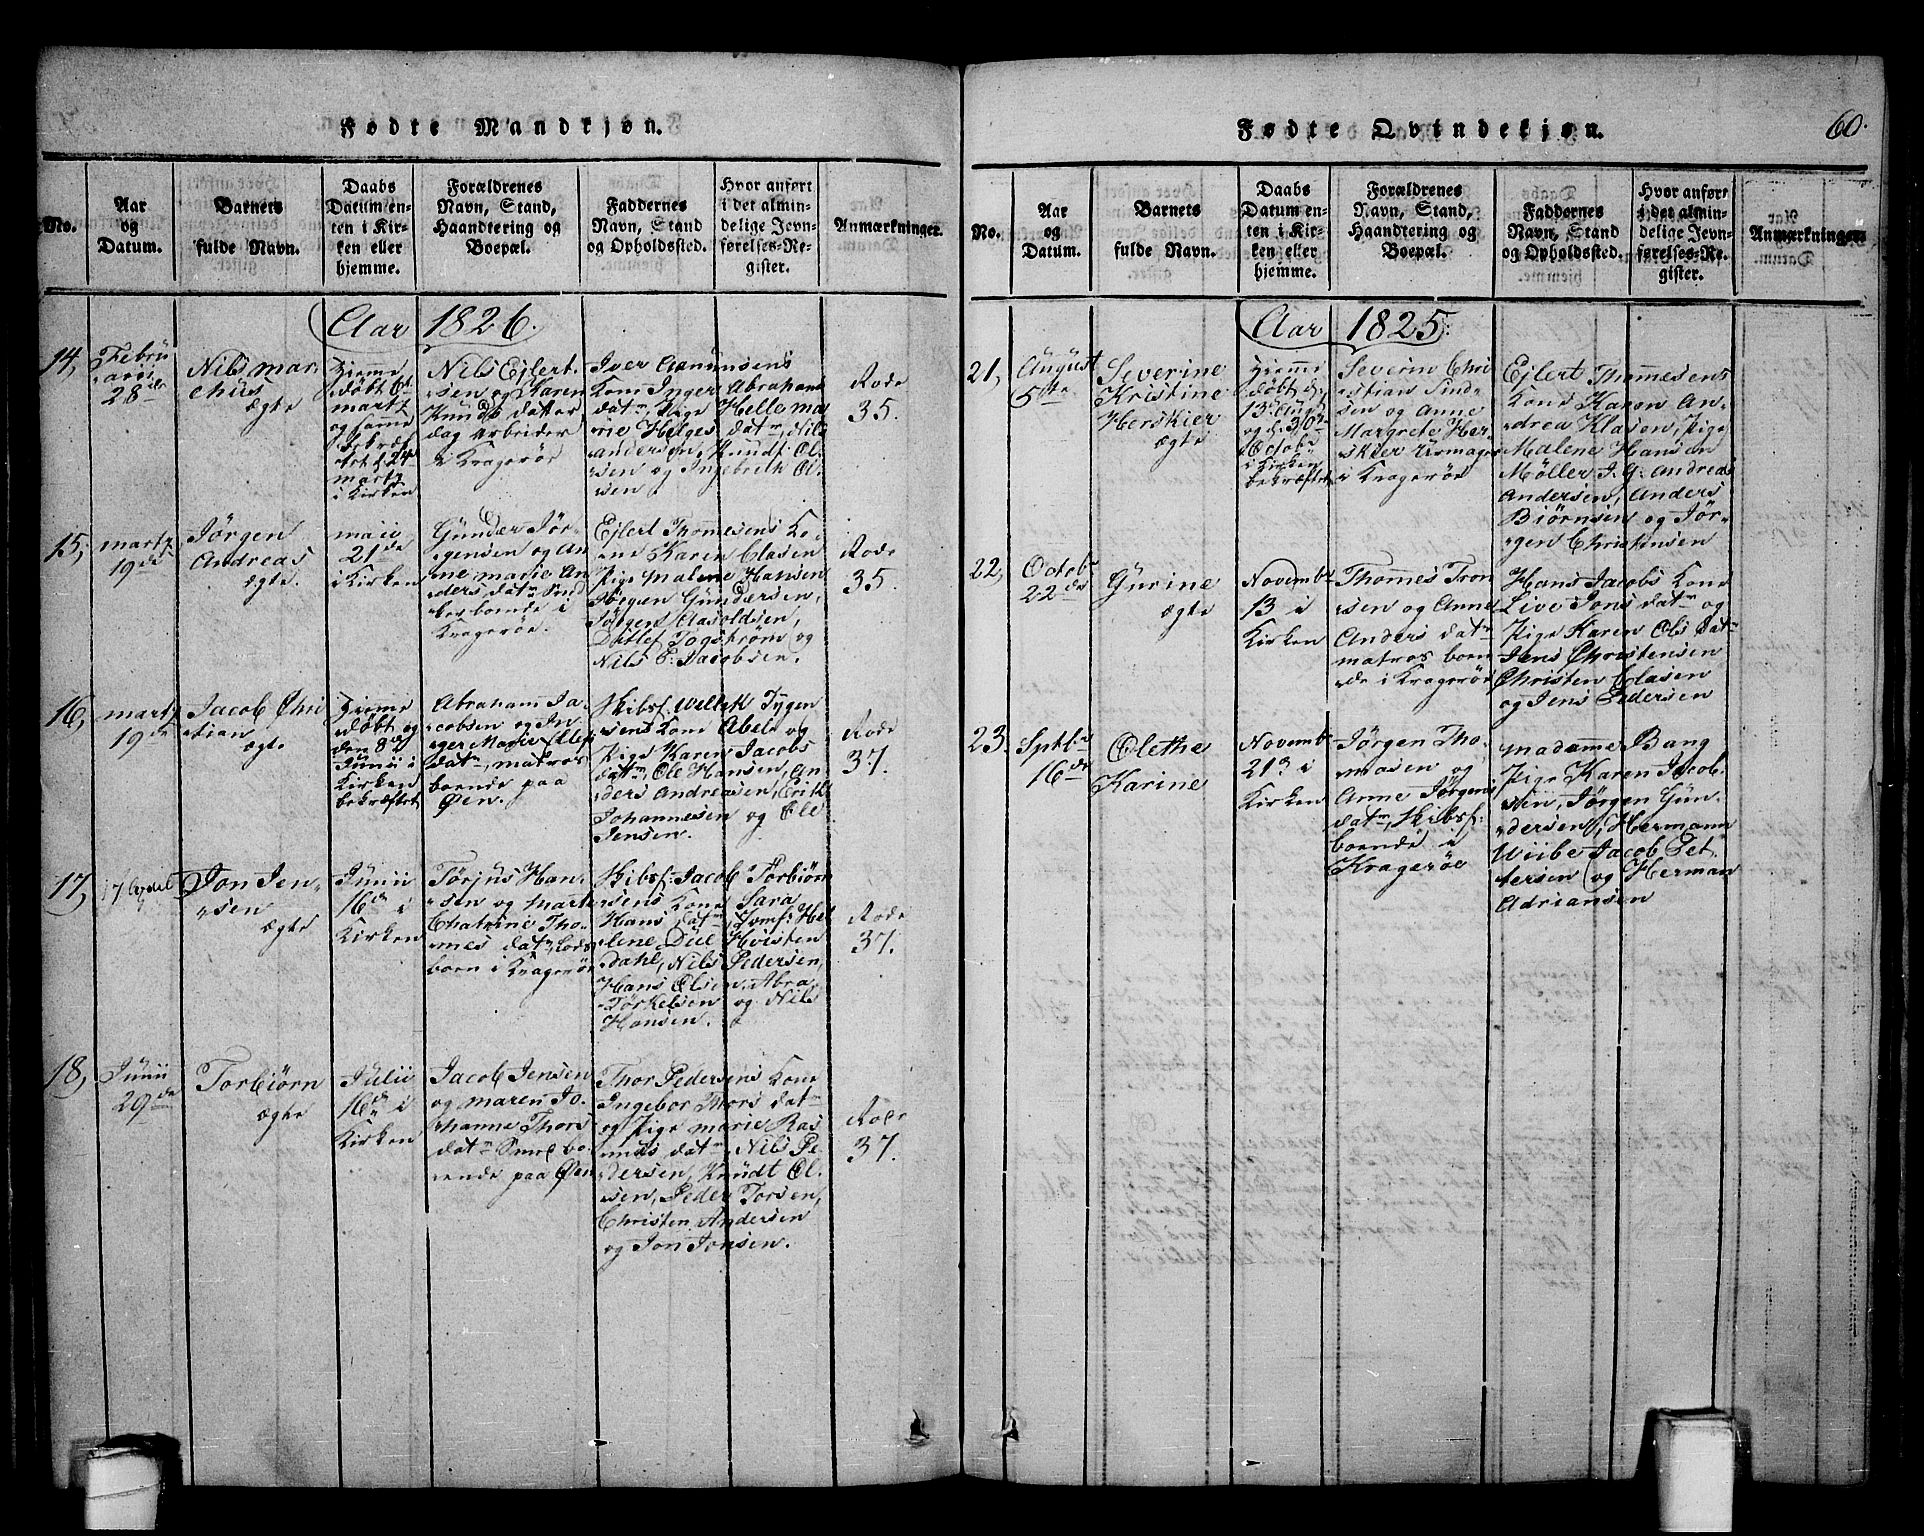 Fødte Mandkjøn.
No.
Aar
og
Datum.
Barnets
fulde Navn.
Daabs
Datum en-
ten i Kir-
ken eller
hjemme.
Forældrenes
Navn, Stand,
Haandtering og
Boepæl.
Faddernes
Navn, Stand
og Opholdssted.
Hvor anført
i det almin-
delige Jevn-
førelses-Re-
gister.
Anmærkninger.
Aar 1826.
14,
Febru
arii
28de
Nils mar-
chus
ægte
Hieme
døbt
martz
og
martz
i Kirken
Nils Ejlert-
sen og Karen
Knuds dater
dag arbeider
i Kragerøe
Iver Amunsens
Kone Inger Abrahams
datr, Pige Helle ma
rie Helges datr, Nils
andersen, Knudt Ol-
sen og Ingebreth Ol-
sen
Rode
35.
15,
martz
19de
Jørgen
Andreas
ægte.
maii
21de
i Kirken
Gunder Jør-
gensen og An
ne marie An
ders datr
boende i
Kragerøe.
Ejlert Thomesens Ko-
ne Karen Clasen
Pige Malene Hansen
Jørgen Gundersen,
Jørgen Aasoldsen,
Ditlef Fogstrøm og
Nils P: Jacobsen.
Rode
35.
16,
martz
19de
Jacob Chri
stian
ægte
Hieme
døbt og
den 8de
Junii i
Kirken
bekræftet
Abraham Ja-
cobsen og In-
ger Marie Ellefs
datr, matros
boende paa
Øen.
Skibsf. Willek Tygen
sens Kone Abel og
Pige Karen Jacobs
datr, Ole Hansen, An
ders Andreasen, Erik
Johannesen og Ole
Jensen.
Rode
37.
17,
17 Apriil
Jon Jen-
sen
ægte
Junii
16de i
Kirken
Torjus Han-
sen og Marte
Chatrine Tho-
mes datr, Lods
boen i Kragerøe
Skibsf: Jacob Torbiørn
sens Kone Sara
Hans datr, Jomf: He-
lene Due Hvisten
dahl, Nils Pedersen,
Hans Olsen, Abra.
Torkelsen og Nils
Hansen.
Rode
37.
18,
Junii
29de
Torbiørn
ægte
Julii
16de i
Kirken
Jacob Jensen
og maren Jo-
hanne Thors
datr Smed bo-
ende paa Øen
Thor Pedersens Kone
Ingebor Thors datr
og Pige marie Ras
mus datr, Nils Pe
dersen, Knudt Ol-
sen, Peder Torsen,
Christen Andersen
og Jon Jonsen.
Rode
37.
Fødte Qvindekjøn.
60.
No.
Aar
og
Datum.
Barnets
fulde Navn.
Daabs
Datum en-
ten i Kir-
ken eller
hjemme.
Forældrenes
Navn, Stand,
Haandtering og
Boepæl.
Faddernes
Navn, Stand
og Opholdssted.
Hvor anført
i det almin-
delige Jevn-
førelses-Re-
gister.
Anmærkninger.
Aar 1825.
21,
August
5te
Severine
Kristine
Herskier
ægte
Hieme
døbt d:
13: Aug:
og d. 30te
Octob:
i Kirken
bekræftet
Severin Chri
stian Lund-
sen og Anne
Margrete Her-
skier Urmager
i Kragerøe
Ejlert Thomesens
Kone Karen An-
drea Klasen, Pige
Malene Hansen
Møller J. G. Andreas
Andersen, Anders
Biørnsen og Jør-
gen Christensen
22,
Octobr
22de
Gurine
ægte
Novembr
13 i
Kirken
Thomes Tron
sen og Anne
Anders datr
matros boen
de i Kragerøe
Hans Jacobs Kone
Live Jons datr og
Pige Karen Ols datr
Jens Christensen
Christen Clasen
og Jens Pedersen
23.
Sptbr
16de
Olethe
Karine
Novembr
21de i
Kirken
Jørgen Tho-
masen og
Anne Jørgens
datr, Skibsf:
boende i
Kragerøe
Madame Bang
Pige Karen Jacob.
Nii, Jørgen Gun-
dersen, Hermann
Wiibe Jacob Pet-
tersen og Herman
Adriansen